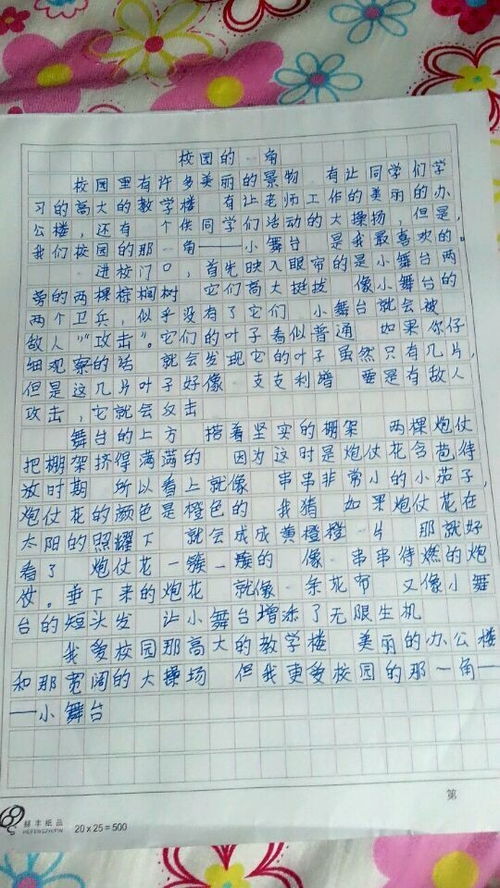 校园的一角
校园里有许多美丽的景物 有让同学们学
习的高大的教学楼 有让老师工作的美丽的办
公楼，还有一个供同学们活动的大操扬，但是，
我们校园的那一角——小舞台 是我最喜欢的。
一进校门口，首先映入眼帘的是小舞台两
旁的两棵棕榈树 它们高大挺拔 像小舞台的
两个卫兵，似乎没有了它们 小舞台就会被
敌人“攻击”。它们的叶子看似普通 如果你仔
细观察的话 就会发现它的叶子虽然只有几片，
但是这几片叶子好像一支支利增 要是有敌人
攻击，它就会反击
舞台的上方 搭着坚实的棚架 两棵炮仗
把棚架挤得满满的 因为这时是炮仗花含苞待
放时期 所以看上就像一串串非常小的小茄子，
炮仗花的颜色是橙色的 我猜 如果炮仗花在
太阳的照耀下 就会成成黄橙橙一片 那就好
看了 炮仗花一簇一簇的 像一串串待燃的炮
仗。垂下来的炮花 就像一条花布 又像小舞
台的短头发 让小舞台增添了无限生机
我爱校园那高大的教学楼 美丽的办公楼
和那宽阔的大操场 但我更爱校园的那一角—
—小舞台
第
赫丰纸品
HEFENGZHIPIN
20 x 25 = 500